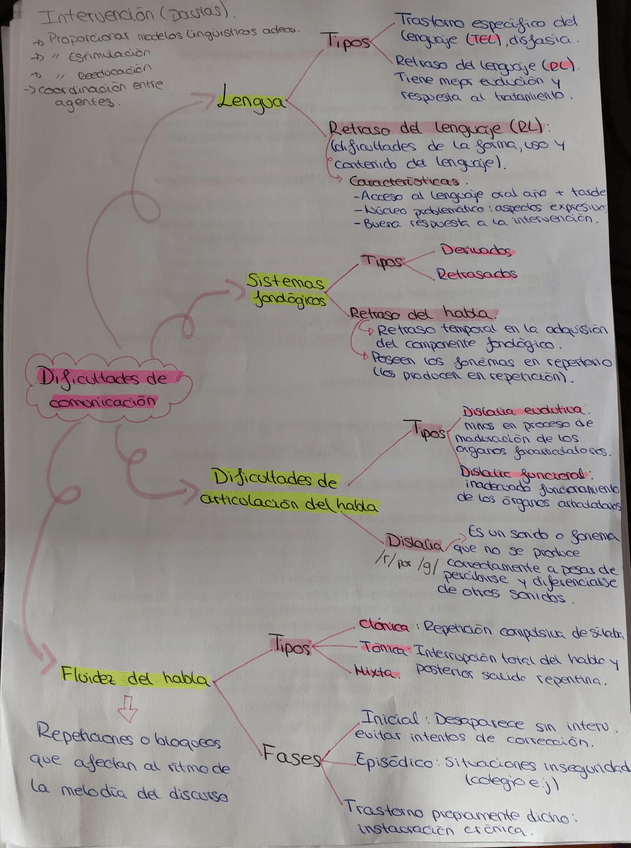 Intervención (pautas).
→ Proporcionar modelos lingüísticos adecu.
→ " Estimulación
→ " Reeducación
→ Coordinación entre
agentes.
Lengua
Tipos
Trastorno específico del
lenguaje (TEL), disfasia.
Retraso del lenguaje (RL).
Tiene mejor evolución y
respuesta al tratamiento.
Retraso del lenguaje (RL):
(dificultades de la forma, uso y
contenido del lenguaje).
Características.
- Acceso al lenguaje oral año + tarde
- Núcleo problemático: aspectos expresivo
- Buena respuesta a la intervención.
Sistemas
fonológicos
Tipos
Derivados
Retrasados
Retraso del habla.
Retraso temporal en la adquisición
del componente fonológico.
Poseen los fonemas en repertorio
(los producen en repetición).
Dificultades de
comunicación
Dificultades de
articulación del habla
Tipos
Dislalia evolutiva.
niños en proceso de
maduración de los
órganos
Dislalia funcional:
inadecuado funcionamiento
de los órganos articulatorios
Dislalia
/r/ por /g/
Es un sonido o fonema
que no se produce
correctamente a pesar de
percibirse y diferenciarse
de otros sonidos.
Fluidez del habla
Repeticiones o bloqueos
que afectan al ritmo de
la melodía del discurso
Tipos
Clónica: Repetición compulsiva de sílaba
Tónica: Interrupción total del habla y
posterior salida repentina.
Mixta
Fases
Inicial: Desaparece sin interv.
evitar intentos de corrección.
Episódico: Situaciones inseguridad
(colegio ej)
Trastorno propiamente dicho:
instauración crónica.